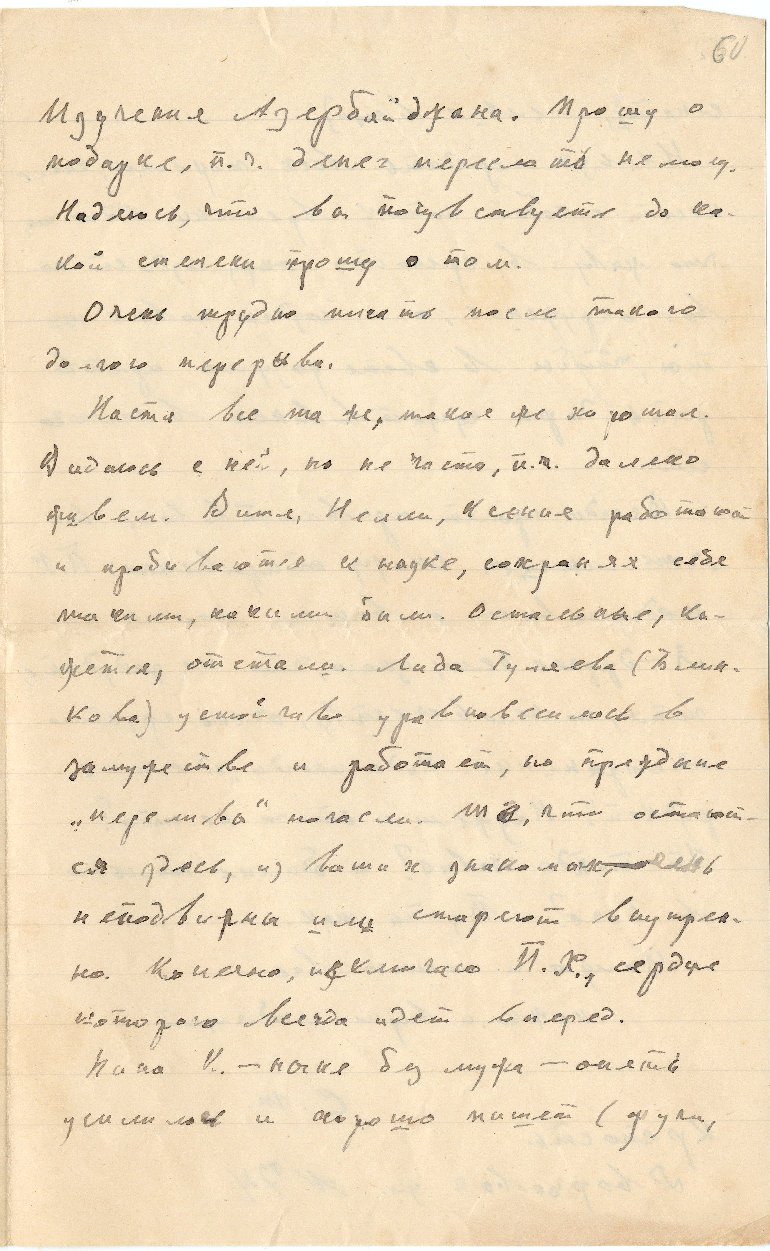 60
Изучения Азербайджана. Прошу о
подарке, п.ч. денег переслать не могу.
Надеюсь, что вы почувствуете до ка-
кой степени прошу о том.
Очень трудно писать после такого
долгого перерыва.
Настя все та же, такая же хорошая.
Видаюсь с ней, но не часто, п.ч. далеко
живем. Витя, Нелли, Ксения работают
и пробиваются к науке, сохраняя себя
такими, какими были. Остальные, ка-
жется, отстали. Лида Гуляева (Блин-
кова) устойчиво уравновесилась в
замужестве и работает, но прежние
„переливы“ погасли. Те, что остают-
ся здесь, из ваших знакомых, очень
неподвижны или стареют внутрен-
но. Конечно, исключаю П.Х., сердце
которого всегда идет вперед.
Нина К. — ныне без мужа — опять
усилилась и хорошо пишет (